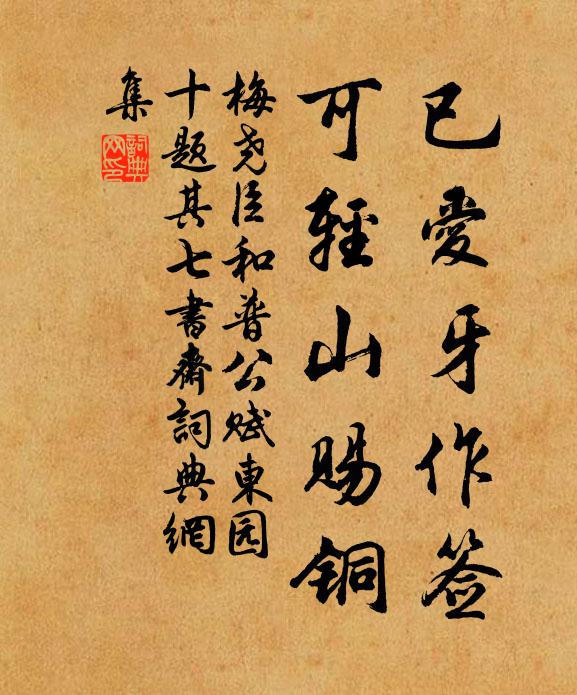 已愛牙作签
可輕山賜铜
梅尧臣和普公赋東园
十题其七書齋詞典網
集
詞典网印